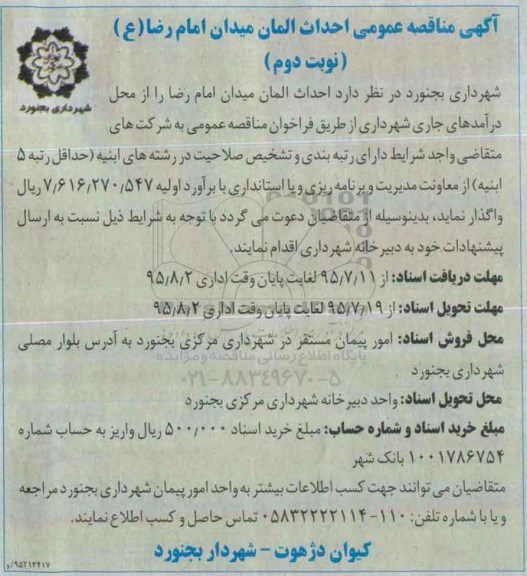 آگهی مناقصه عمومی احداث المان میدان امام رضا (ع)
(نوبت دوم)
شهرداری بجنورد
شهرداری بجنورد در نظر دارد احداث المان میدان امام رضا را از محل
درآمدهای جاری شهرداری از طریق فراخوان مناقصه عمومی به شرکت های
متقاضی واجد شرایط دارای رتبه بندی و تشخیص صلاحیت در رشته های ابنیه (حداقل رتبه ۵
ابنیه) از معاونت مدیریت و برنامه ریزی و یا استانداری با برآورد اولیه ۷٫۶۱۶٫۲۷۰٫۵۴۷ ریال
واگذار نماید، بدینوسیله از متقاضیان دعوت می گردد با توجه به شرایط ذیل نسبت به ارسال
پیشنهادات خود به دبیرخانه شهرداری اقدام نمایند.
مهلت دریافت اسناد: از ۹۵/۷/۱۱ لغایت پایان وقت اداری ۹۵/۸/۲
مهلت تحویل اسناد: از ۹۵/۷/۱۹ لغایت پایان وقت اداری ۹۵/۸/۲
محل فروش اسناد: امور پیمان مستقر در شهرداری مرکزی بجنورد به آدرس بلوار مصلی
پایگاه اطلاع رسانی مناقصه و مزایده
شهرداری بجنورد
۰۲۱-۸۸۳۴۹۶۷۰-۵
محل تحویل اسناد: واحد دبیرخانه شهرداری مرکزی بجنورد
مبلغ خرید اسناد و شماره حساب: مبلغ خرید اسناد ۵۰۰٫۰۰۰ ریال واریز به حساب شماره
۱۰۰۱۷۸۶۷۵۴ بانک شهر
متقاضیان می توانند جهت کسب اطلاعات بیشتر به واحد امور پیمان شهرداری بجنورد مراجعه
و یا با شماره تلفن: ۱۱۰-۰۵۸۳۲۲۲۲۱۱۴ تماس حاصل و کسب اطلاع نمایند.
کیوان دژهوت - شهردار بجنورد
۹۵۲۱۳۴۱۷/و